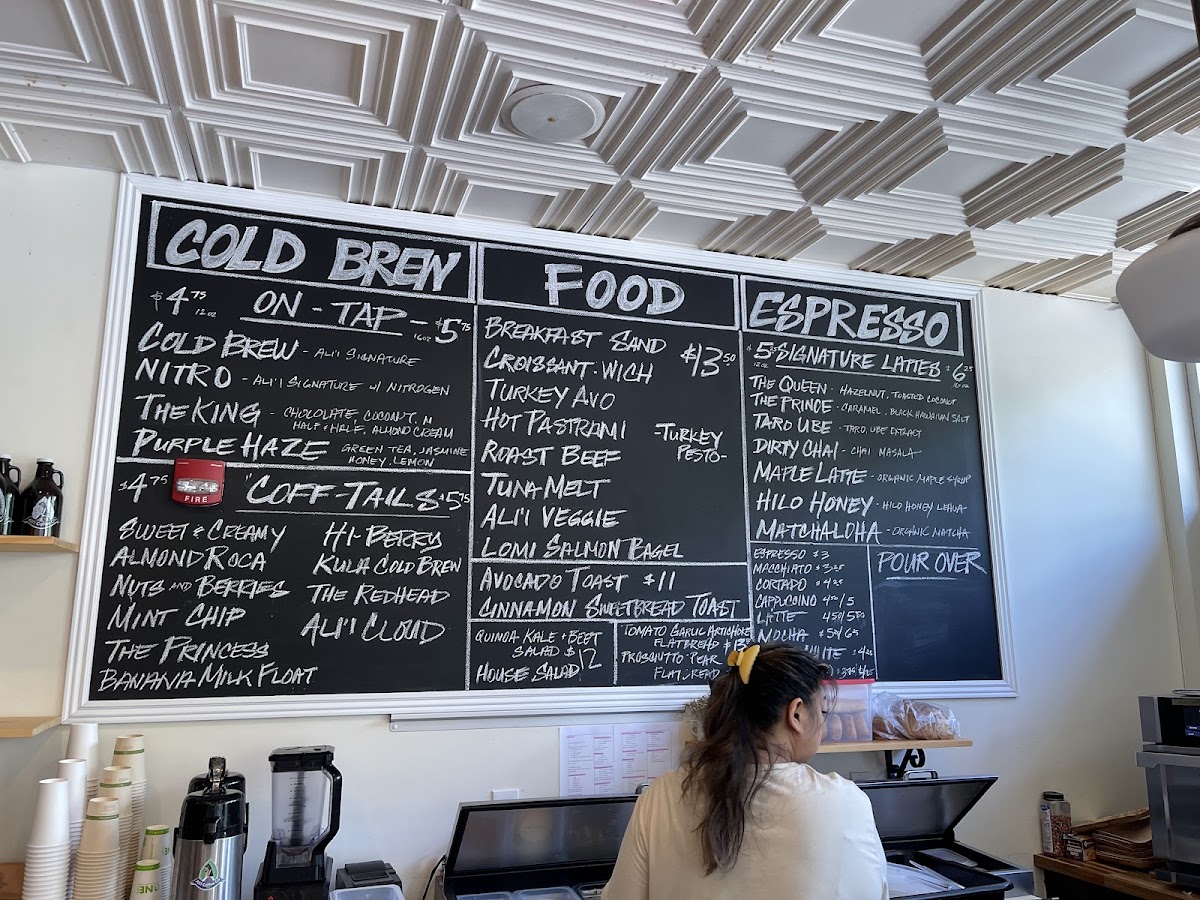 COLD BREW
$4.75 12oz ON-TAP - 16oz $5.75
COLD BREW - ALI'I SIGNATURE
NITRO - ALI'I SIGNATURE W/ NITROGEN
THE KING - CHOCOLATE, COCONUT, M
HALF & HALF, ALMOND CREAM
PURPLE HAZE GREEN TEA, JASMINE
HONEY, LEMON
$4.75 "COFF-TAILS $5.75
FIRE
SWEET & CREAMY
ALMOND ROCA
NUTS AND BERRIES
MINT CHIP
THE PRINCESS
BANANA MILK FLOAT
HI-BERRY
KULA COLD BREW
THE REDHEAD
ALI'I CLOUD
FOOD
BREAKFAST SAND
CROISSANT-WICH
$13.50
TURKEY AVO
HOT PASTRAMI
ROAST BEEF
-TURKEY
PESTO-
TUNA MELT
ALI'I VEGGIE
LOMI SALMON BAGEL
AVOCADO TOAST $11
CINNAMON SWEETBREAD TOAST
QUINOA KALE + BEET
SALAD $12
HOUSE SALAD
TOMATO GARLIC ARTICHOKE
FLATBREAD
PROSCIUTTO-PEAR
FLATBREAD
ESPRESSO
12oz SIGNATURE LATTES $6.25
16oz
THE QUEEN - HAZELNUT, TOASTED COCONUT
THE PRINCE - CARAMEL, BLACK HAWAIIAN SALT
TARO UBE - TARO, UBE EXTRACT
DIRTY CHAI - CHAI MASALA
MAPLE LATTE - ORGANIC MAPLE SYRUP
HILO HONEY - HILO HONEY LEHUA
MATCHALOHA - ORGANIC MATCHA
ESPRESSO $3
MACCHIATO $3.25
CORTADO $4.25
CAPPUCCINO 4.50/5
LATTE 4.50/5.50
MOCHA
POUR OVER